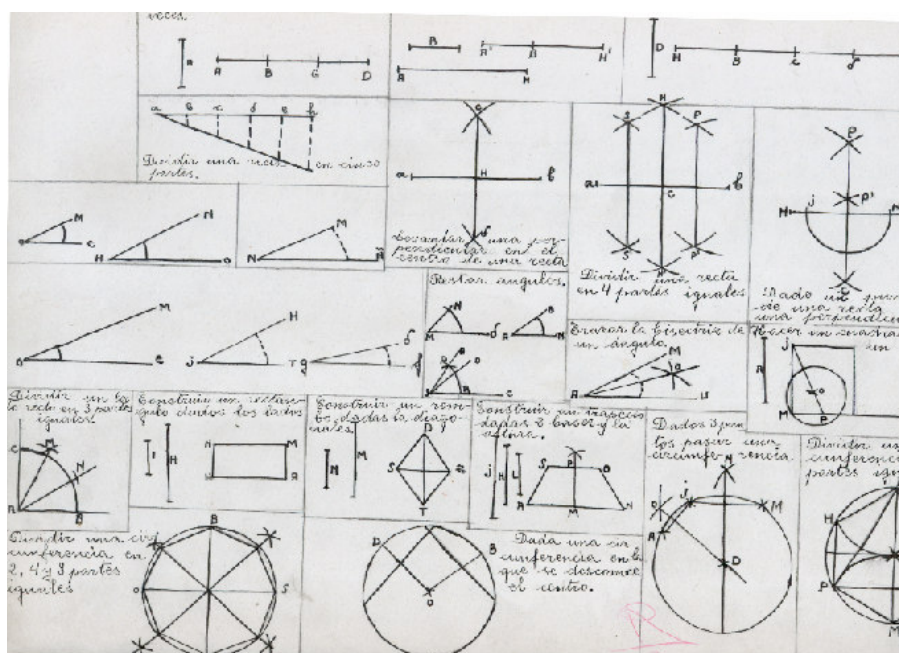 veces.
R
A B G D
B
A' A H'
A H
D
H B C
a e c d e b
Dividir una recta en cinco
partes.
M
H N O
N M
a H b
Levantar una per-
pendicular en el
centro de una recta
S H P
a C b
Dividir una recta
en 4 partes iguales
P
H J P' H
Dado un pun
de una recta
una perpendicu
M
J H T
Restar angulos.
M N
A B
Trazar la bisectriz de
un ángulo.
A M
Hacer un cuadra
un
A
J O M P
Dividir un
recto en 3 partes
iguales
C M N
A B
Construir un rectan-
gulo dados los lados
I H
N M
Construir un rom-
bo dadas las diago-
nales.
N M
D S T
Construir un trapecio
dadas 2 bases y la
altura.
J H L
S P O
A M N
Dados 3 pun
tos pasar una
circunferencia
N
A J M
D
Dividir un
cunferencia
partes igu
H
P
M
Dividir una cir
cunferencia en
2, 4 y 8 partes
iguales
B
O S
D B
O
Dada una cir
cunferencia en la
que se desconoce
el centro.